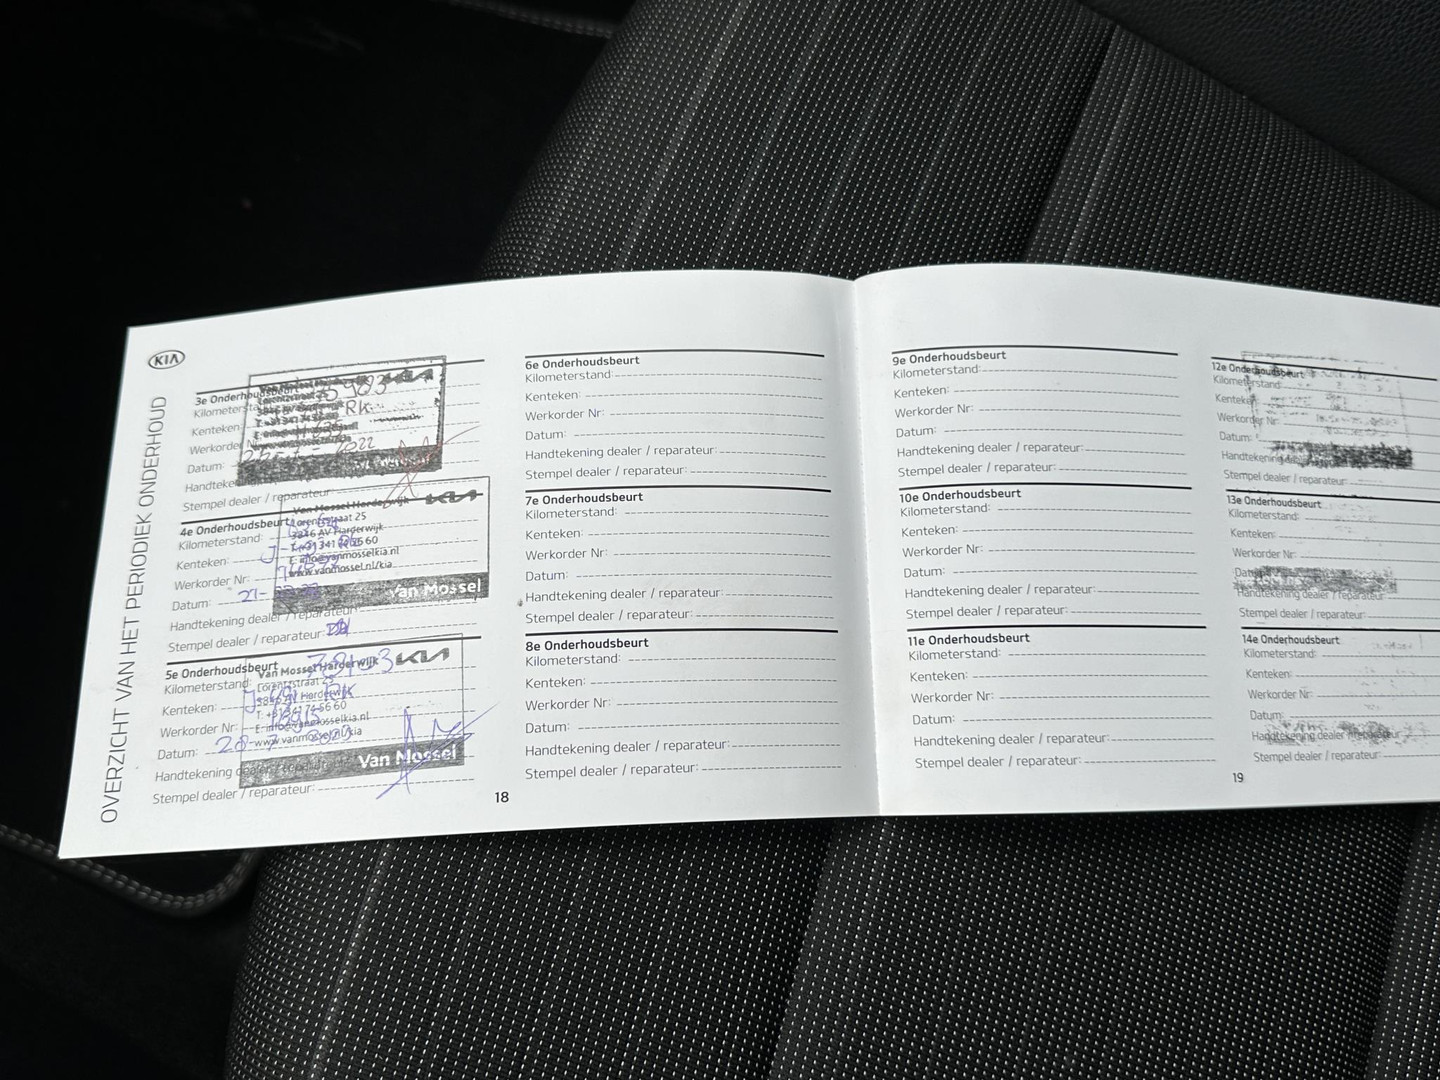 KIA
OVERZICHT VAN HET PERIODIEK ONDERHOUD
3e Onderhoudsbeurt
Kilometerstand
Kenteken: RK
Werkorder
Datum: 2022
Stempel dealer / reparateur:
4e Onderhoudsbeurt
Kilometerstand:
Kenteken:
Werkorder Nr:
Datum: 21-
Handtekening dealer / reparateur:
Stempel dealer / reparateur:
Van Mossel Harderwijk KIA
Lorentzstraat 25
3846 AV Harderwijk
E: info@vanmosselkia.nl
www.vanmossel.nl/kia
Van Mossel
5e Onderhoudsbeurt
Kilometerstand:
Kenteken:
Werkorder Nr:
Datum: 28-
Handtekening dealer / reparateur:
Stempel dealer / reparateur:
Van Mossel Harderwijk KIA
Lorentzstraat 25
3846 AV Harderwijk
E: info@vanmosselkia.nl
www.vanmossel.nl/kia
Van Mossel
6e Onderhoudsbeurt
Kilometerstand:
Kenteken:
Werkorder Nr:
Datum:
Handtekening dealer / reparateur:
Stempel dealer / reparateur:
7e Onderhoudsbeurt
Kilometerstand:
Kenteken:
Werkorder Nr:
Datum:
Handtekening dealer / reparateur:
Stempel dealer / reparateur:
8e Onderhoudsbeurt
Kilometerstand:
Kenteken:
Werkorder Nr:
Datum:
Handtekening dealer / reparateur:
Stempel dealer / reparateur:
18
9e Onderhoudsbeurt
Kilometerstand:
Kenteken:
Werkorder Nr:
Datum:
Handtekening dealer / reparateur:
Stempel dealer / reparateur:
10e Onderhoudsbeurt
Kilometerstand:
Kenteken:
Werkorder Nr:
Datum:
Handtekening dealer / reparateur:
Stempel dealer / reparateur:
11e Onderhoudsbeurt
Kilometerstand:
Kenteken:
Werkorder Nr:
Datum:
Handtekening dealer / reparateur:
Stempel dealer / reparateur:
12e Onderhoudsbeurt
Kilometerstand:
Kenteken:
Werkorder Nr:
Datum:
Handtekening
Stempel dealer / reparateur:
13e Onderhoudsbeurt
Kilometerstand:
Kenteken:
Werkorder Nr:
Datum:
Handtekening dealer / reparateur:
Stempel dealer / reparateur:
14e Onderhoudsbeurt
Kilometerstand:
Kenteken:
Werkorder Nr:
Datum:
Handtekening dealer / reparateur:
Stempel dealer / reparateur:
19